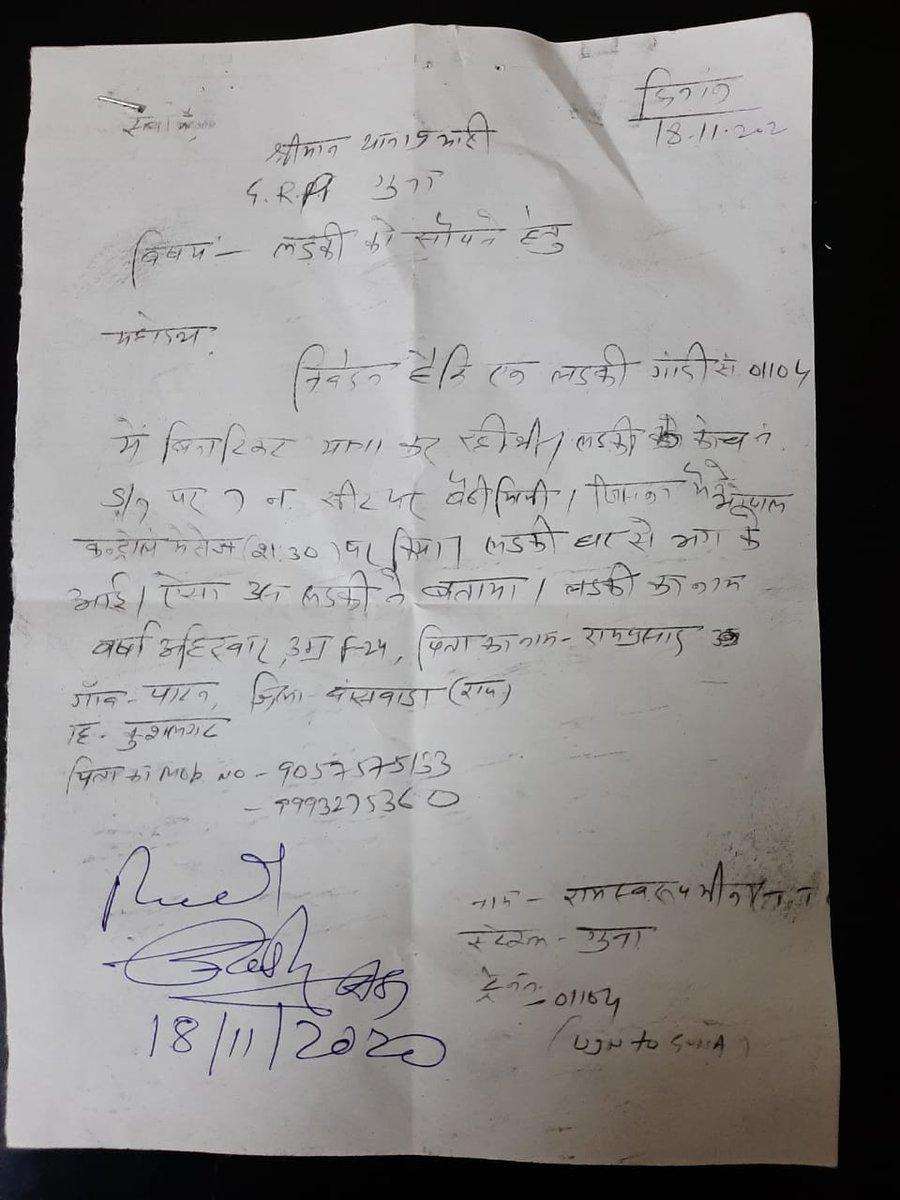 सेवा में,
दिनांक
18.11.202
श्रीमान थाना प्रभारी
G.R.P गुना
विषय - लडकी को सोंपने हेतु
महोदय.
निवेदन है कि एक लडकी गाडी सं. 01104
में बिना टिकट यात्रा कर रही थी। लडकी कोच नं.
D/1 पर 7 न. सीट पर बैठी मिली। जिसका मैने भोपाल
कन्ट्रोल मैसेज (21.30) पर किया। लडकी घर से भाग के
आई। ऐसा उस लडकी ने बताया। लडकी का नाम
वर्षा अहिरवार, उम्र F-24, पिता का नाम - रामप्रसाद
गाँव - पाटन, जिला - बांसवाडा (राज)
कुशलगढ
पिता का Mob. NO - 9057575133
- 9993275360
नाम - रामस्वरूप मीना
स्टेशन - गुना
ट्रेन नं. - 01104
(UJN to GUNA)
18/11/2020